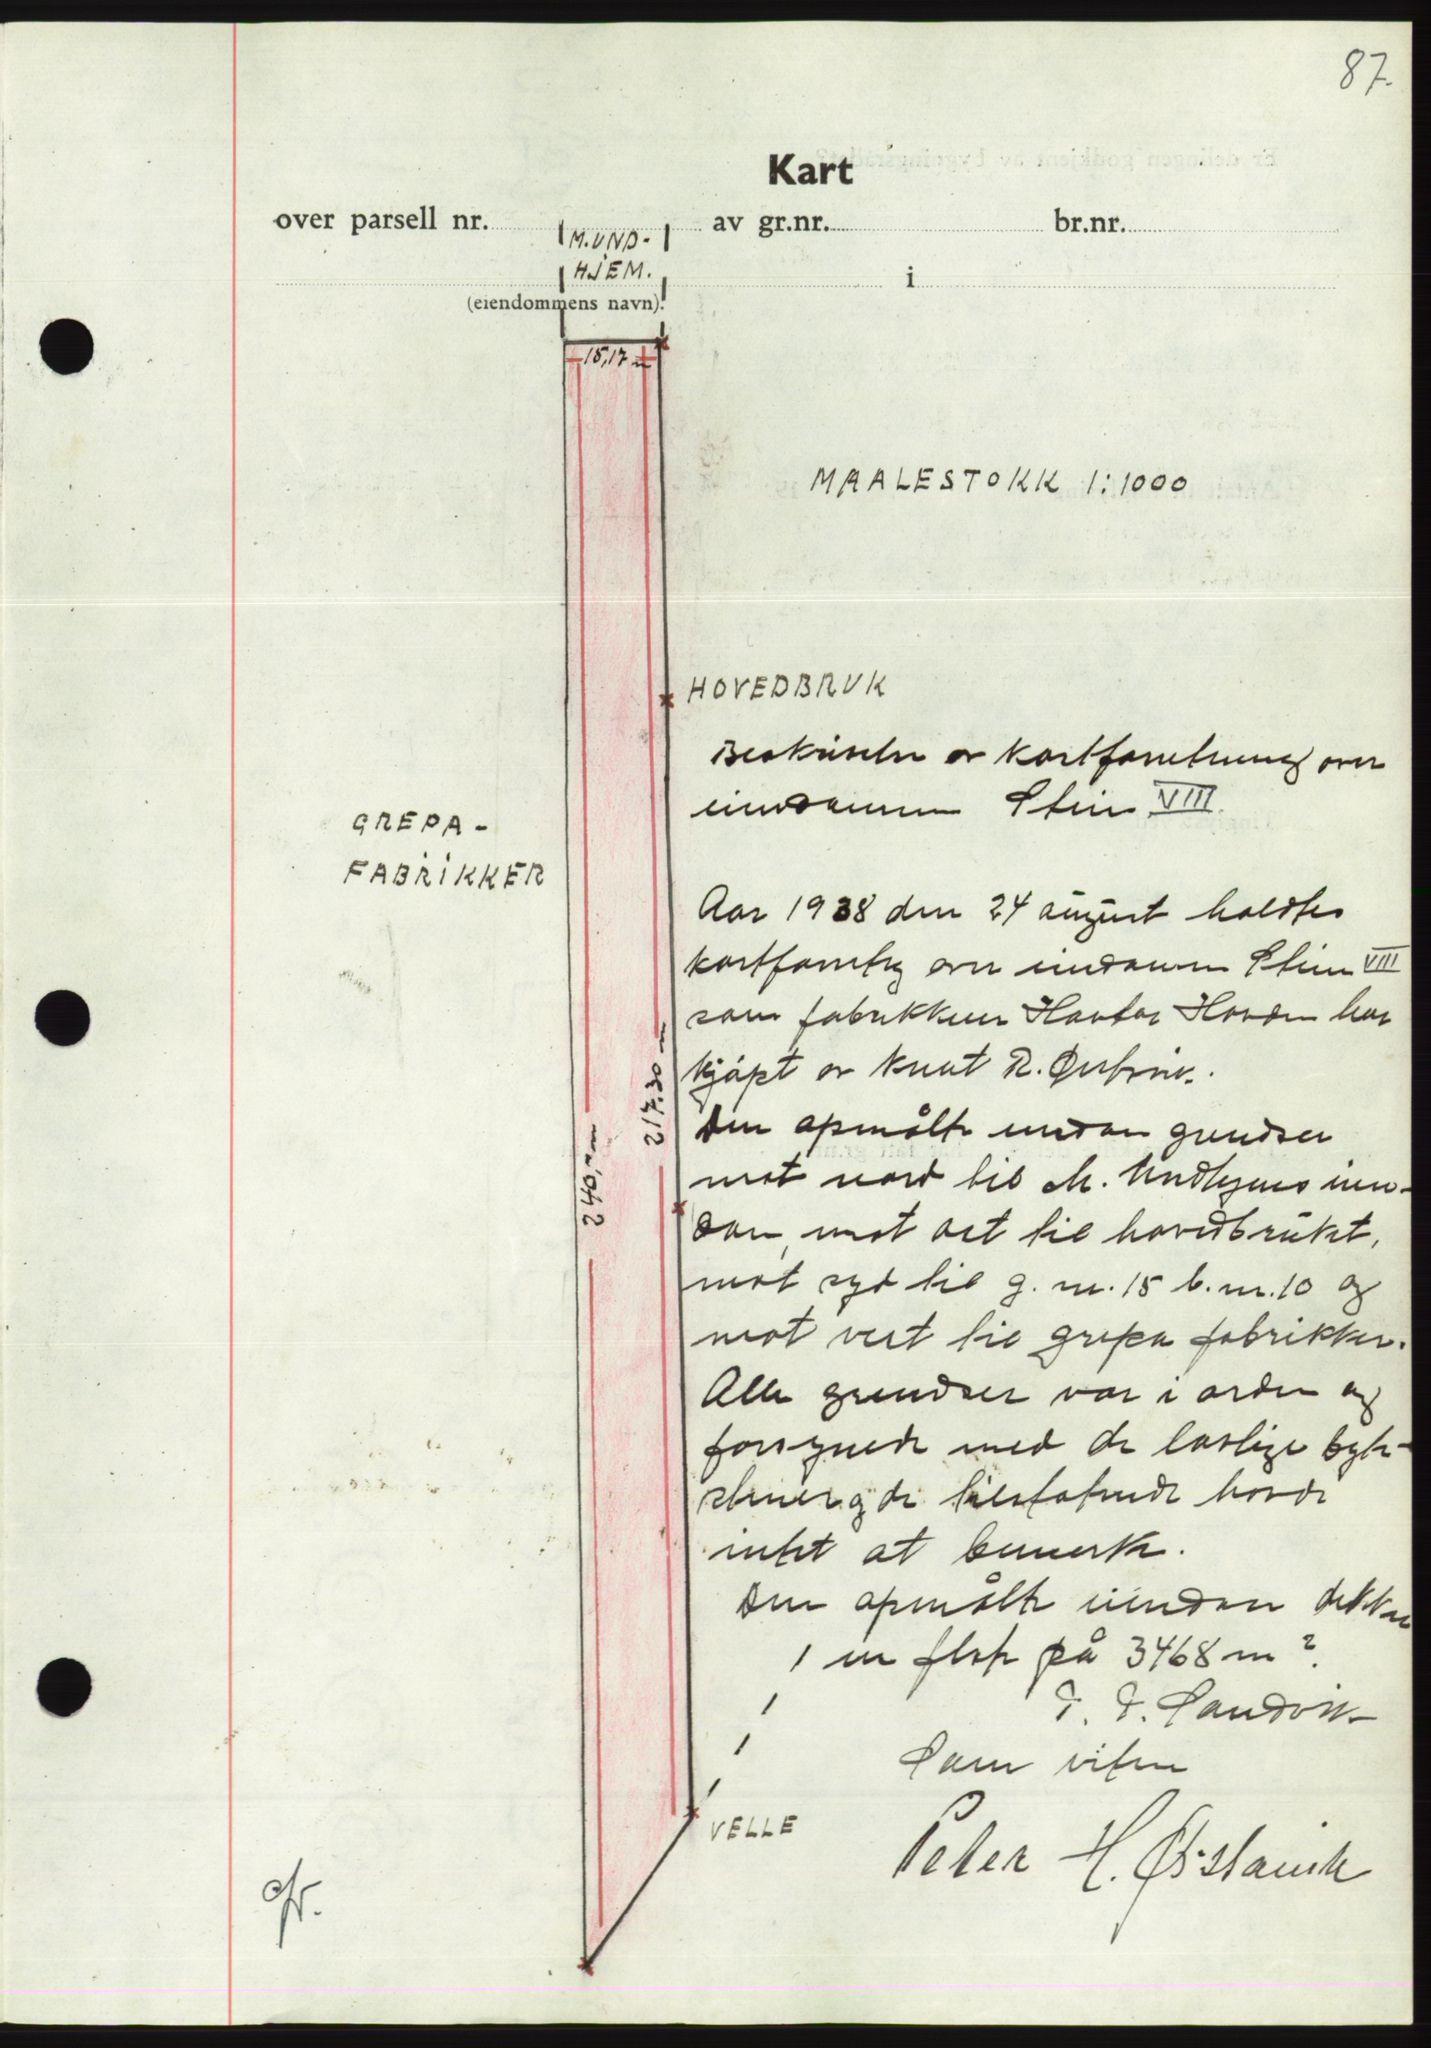 87.
Kart
over parsell nr. av gr.nr. br.nr.
M. UND-
HJEM.
i
(eiendommens navn).
15,17 m
MAALESTOKK 1:1000
HOVEDBRUK
Beskrivelse av kartforretning over
eiendommen Stein VIII.
GREPA-
FABRIKKER
Aar 1938 den 24 august holdtes
kartforretng over eiendommen Stein VIII
som fabrikkeier Havtor Hovden har
kjøpt av Knut R. Østsvik.
217,30 m
240,- m
Den opmålte eiendom grendser
mot nord til M. Undhjems eien-
dom, mot øst til hovedbruket,
mot syd til g. nr. 15 b. nr. 10 og
mot vest til Grepa fabrikker.
Alle grendser var i orden og
forsynede med de lovlige byte-
steiner og de tilstøtende hadde
intet at bemerke.
Den opmålte eiendom dekker
en flate på 3468 m².
Sandvik
Som vitne
VELLE
Peter H. Ørstavik